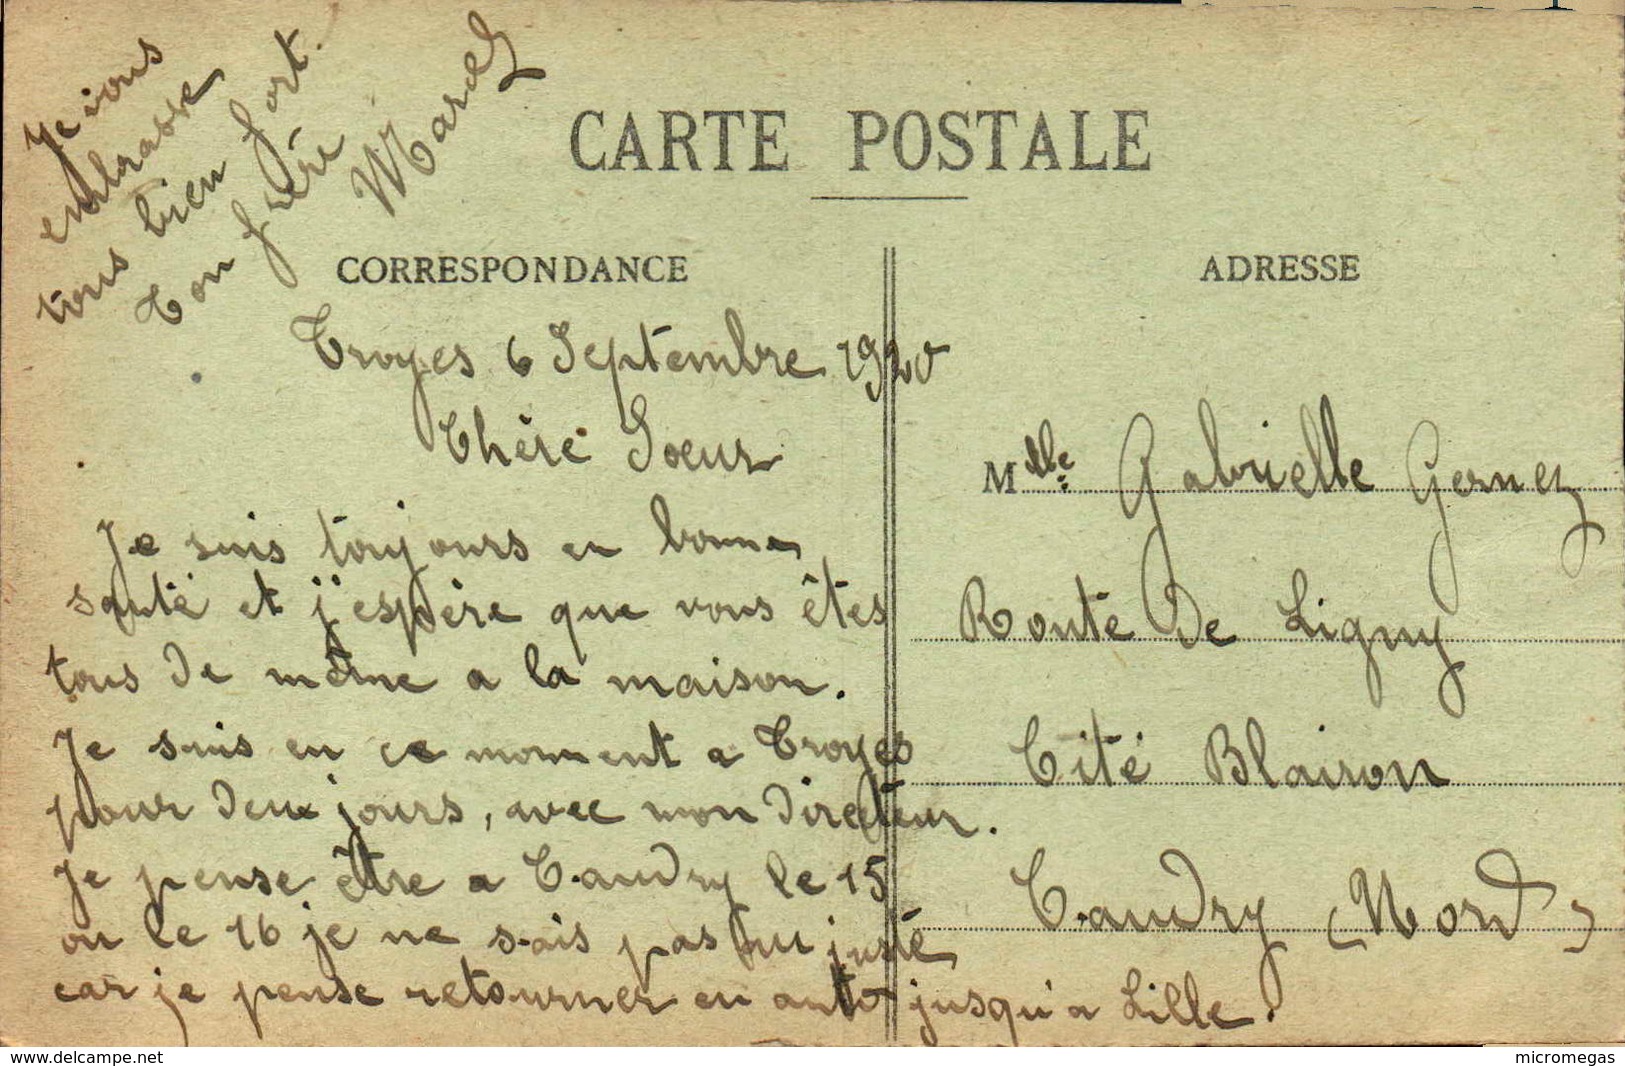 CARTE POSTALE
CORRESPONDANCE
Troyes 6 Septembre 1920
Chère Soeur
Je suis toujours en bonne
santé et j'espère que vous êtes
tous de même a la maison.
Je suis en ce moment a Troyes
pour deux jours, avec mon directeur.
Je pense être a Caudry le 15
ou le 16 je ne sais pas au juste
car je pense retourner en auto jusqu'a Lille.
Je vous
embrasse
tous bien fort.
Ton frère
Marcel
ADRESSE
Mlle: Gabrielle Gernez
Route de Ligny
Cité Blairon
Caudry (Nord)
www.delcampe.net
micromegas